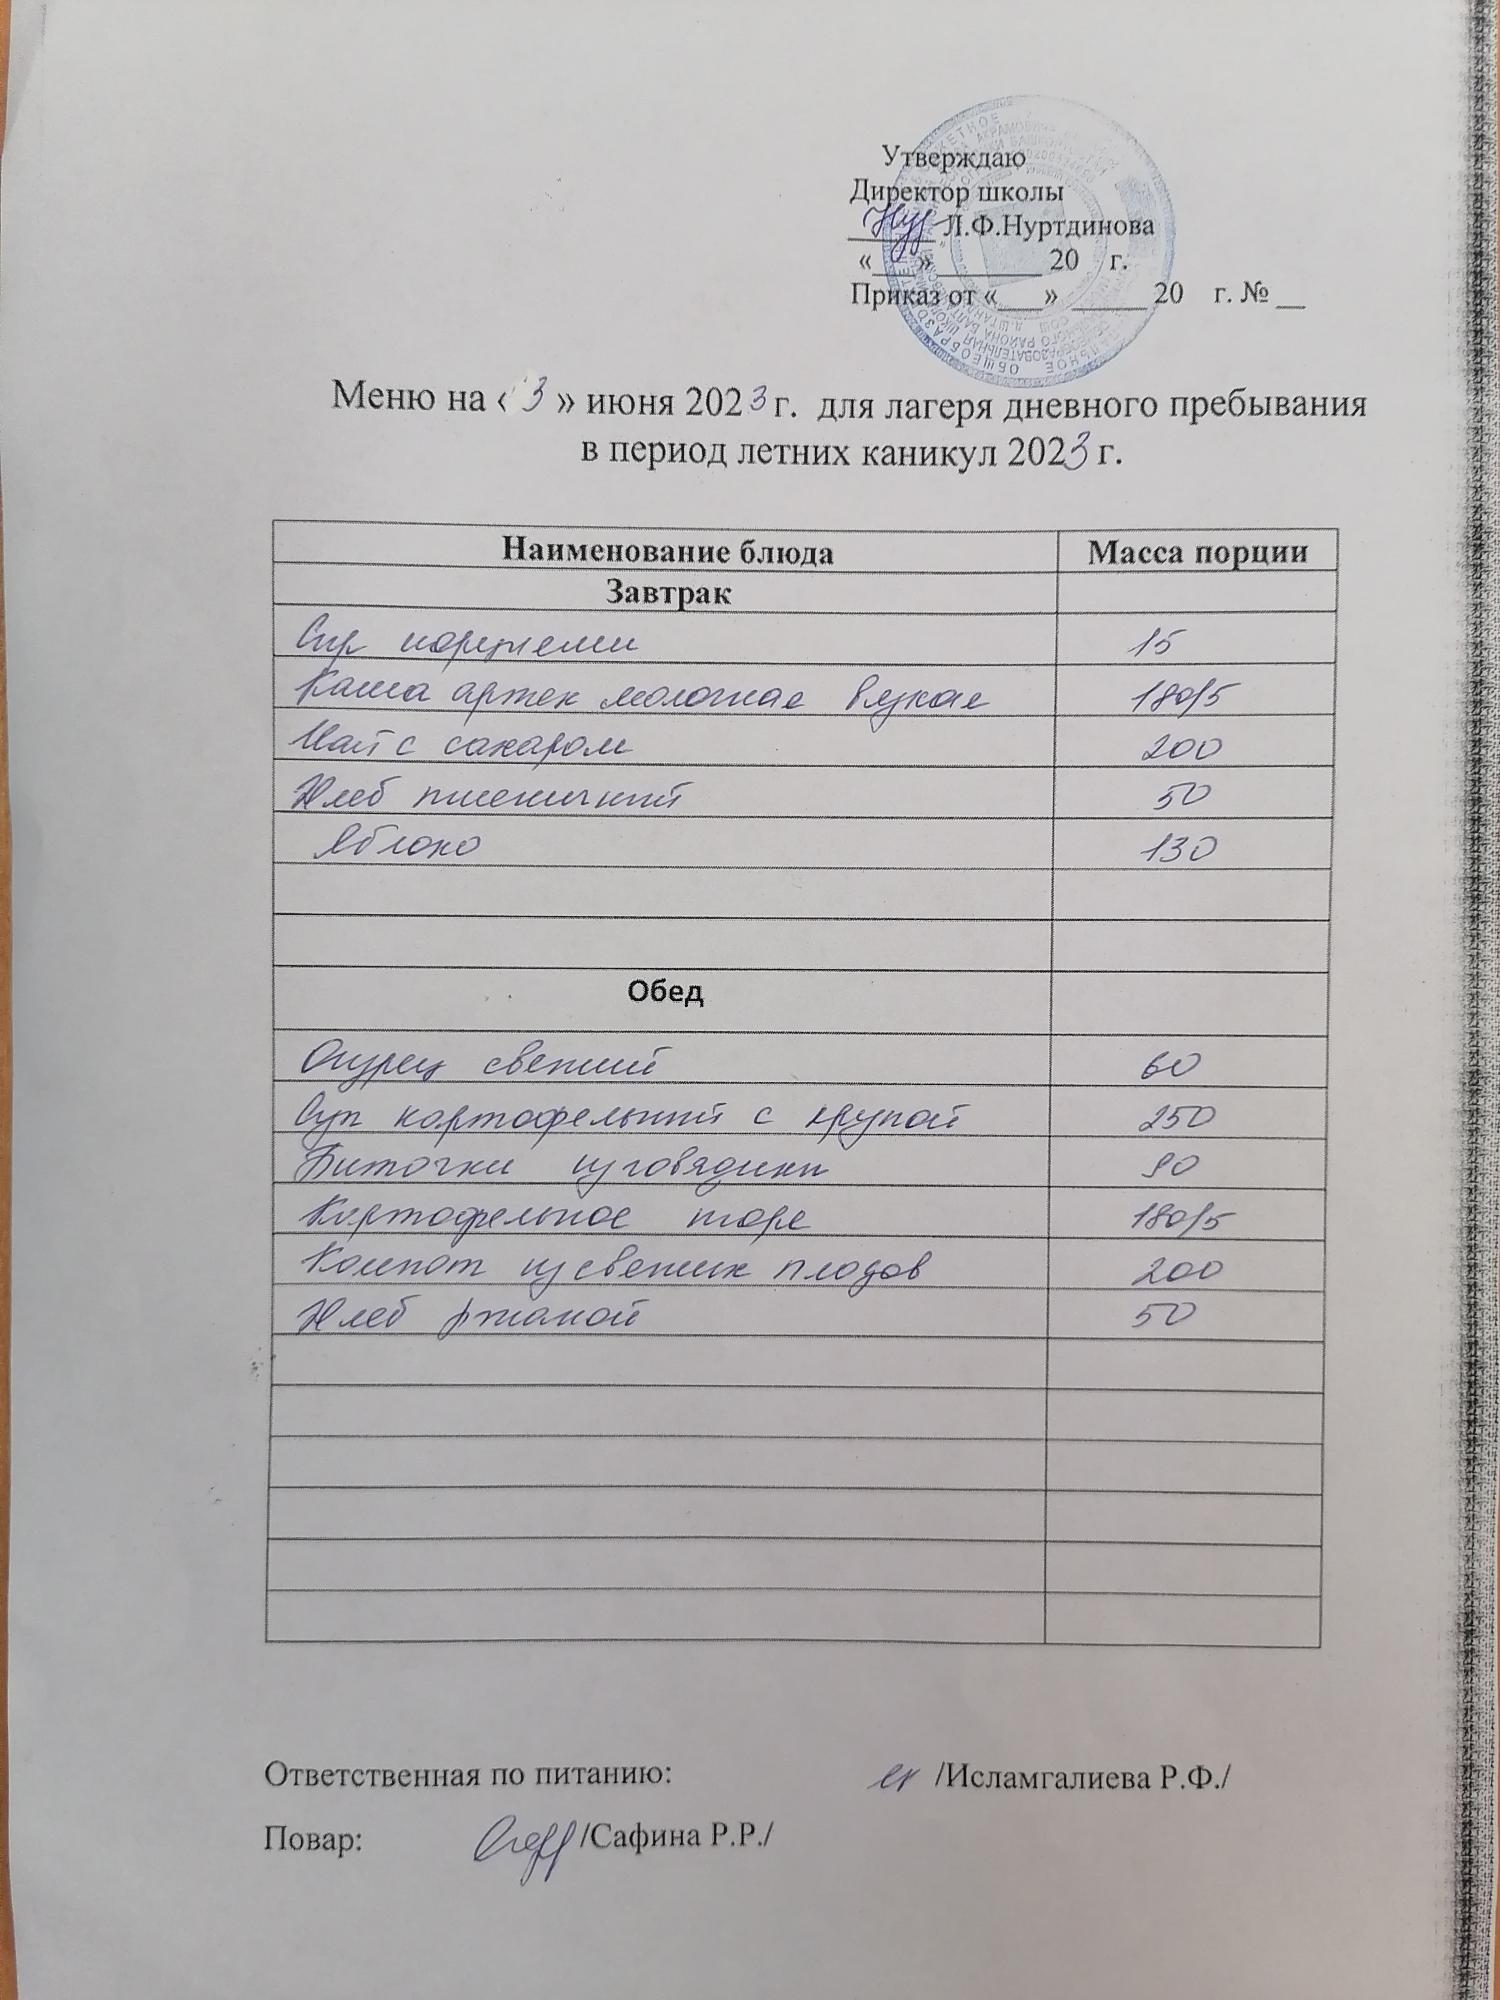 Утверждаю
Директор школы
______ Л.Ф.Нуртдинова
«___» _________ 20 г.
Приказ от «___» _____ 20 г. № __
Меню на « 3 » июня 2023 г. для лагеря дневного пребывания
в период летних каникул 2023 г.
Наименование блюда Масса порции
Завтрак
Сыр порциями 15
Каша артек молочная вязкая 180/5
Чай с сахаром 200
Хлеб пшеничный 50
Яблоко 130
Обед
Огурец свежий 60
Суп картофельный с крупой 250
Биточки из говядины 90
Картофельное пюре 180/5
Компот из свежих плодов 200
Хлеб ржаной 50
Ответственная по питанию: /Исламгалиева Р.Ф./
Повар: /Сафина Р.Р./